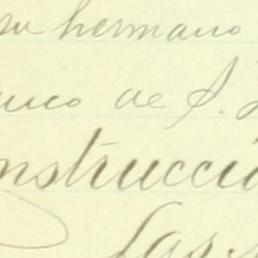 su hermano
uco de S.
nstrucció
Las